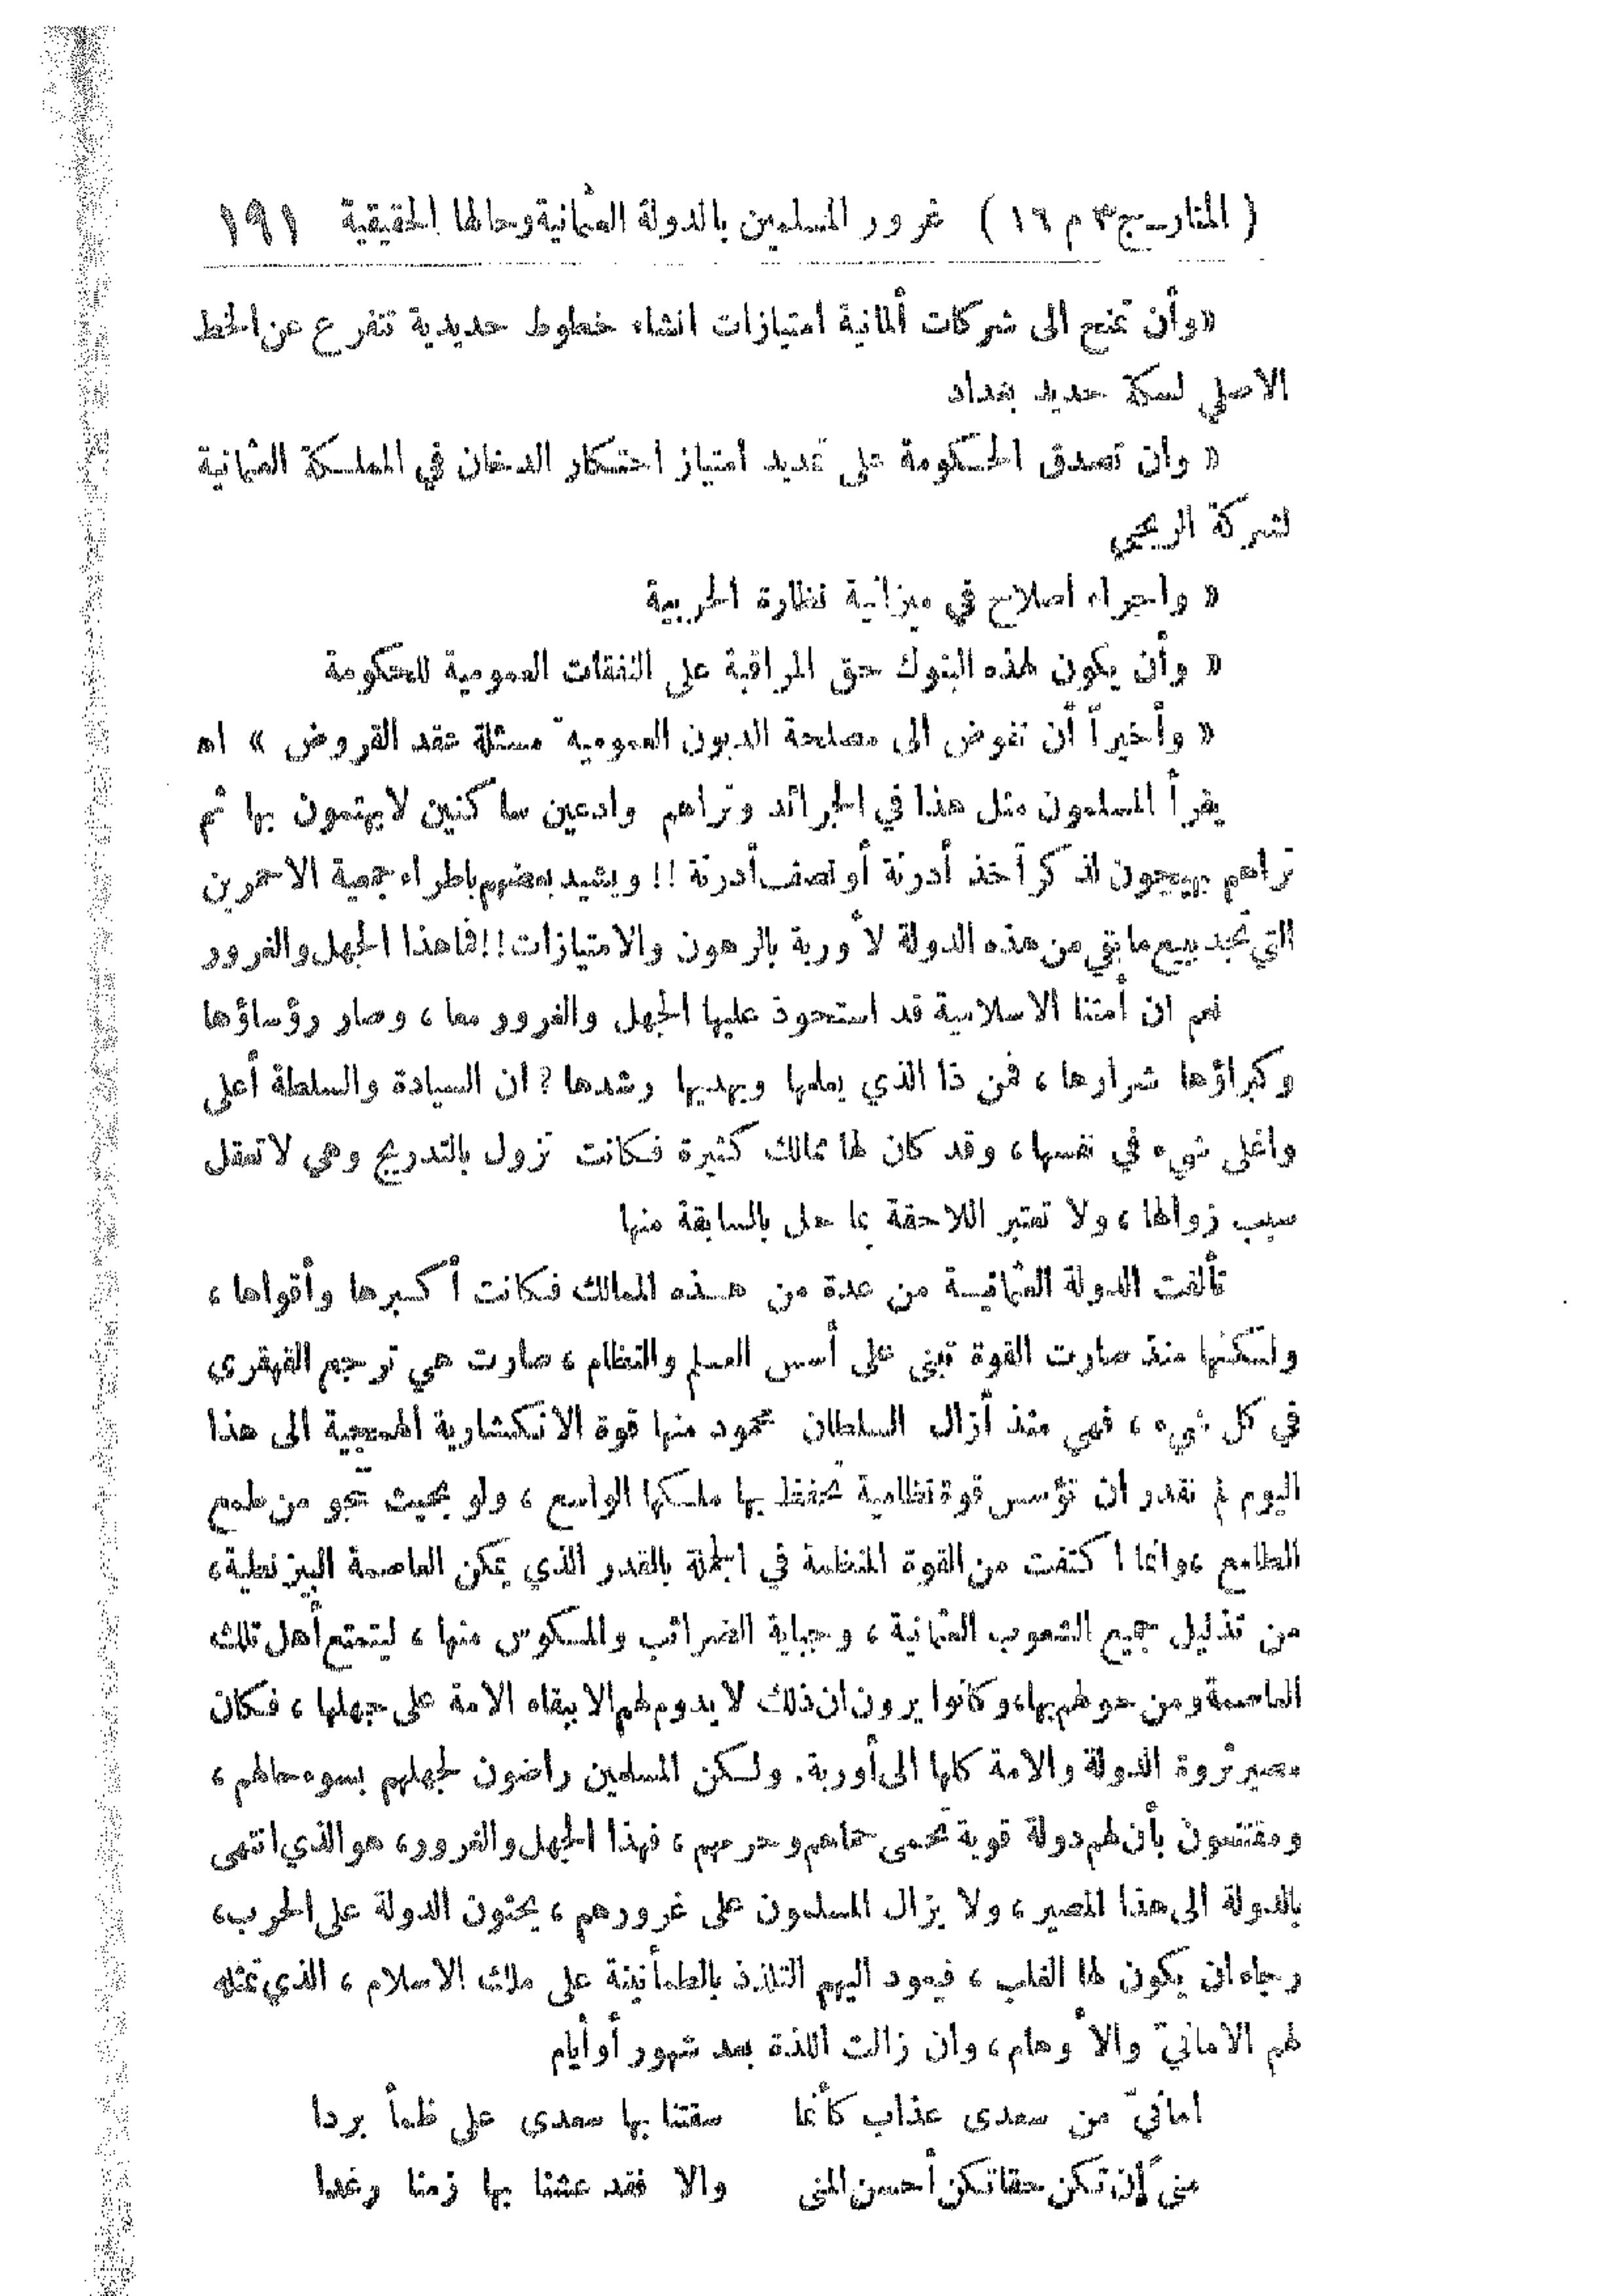 ( المنار ـ ج ٣ م ١٦ ) غرور المسلمين بالدولة العثمانية وحالها الحقيقية ١٩١
«وأن تمنح الى شركات ألمانية امتيازات انشاء خطوط حديدية تتفرع عن الخط
الاصلي لسكة حديد بغداد
« وان تصدق الحكومة على تمديد امتياز احتكار الدخان في المملكة العثمانية
لشركة الريجي
« واجراء اصلاح في ميزانية نظارة الحربية
« وأن يكون لهذه البنوك حق المراقبة على النفقات العمومية للحكومة
« وأخيراً أن تفوض الى مصلحة الديون العمومية مسئلة عقد القروض » اه
يقرأ المسلمون مثل هذا في الجرائد وتراهم وادعين ساكنين لا يهتمون بها ثم
تراهم يهيجون لذكر أخذ أدرنة أو نصف أدرنة !! ويشيد بعضهم باطراء جمعية الاحمرين
التي تجد ببيع ما بقي من هذه الدولة لأوربة بالرهون والامتيازات!! فما هذا الجهل والغرور
نعم ان أمتنا الاسلامية قد استحوذ عليها الجهل والغرور معا ، وصار رؤساؤها
وكبراؤها شرارها ، فمن ذا الذي يعلمها ويهديها رشدها ? ان السيادة والسلطة أعلى
واغلى شيء في نفسها ، وقد كان لها ممالك كثيرة فكانت تزول بالتدريج وهي لا تعقل
سبب زوالها ، ولا تعتبر اللاحقة بما حل بالسابقة منها
تألفت الدولة العثمانية من عدة من هذه الممالك فكانت أكبرها وأقواها ،
ولكنها منذ صارت القوة تبنى على أسس العلم والنظام ، صارت هي ترجع القهقرى
في كل شيء ، فهي منذ أزال السلطان محمود منها قوة الانكشارية الهمجية الى هذا
اليوم لم تقدر ان تؤسس قوة نظامية تحفظ بها ملكها الواسع ، ولو بحيث تنجو من طمع
الطامع ، وانما اكتفت من القوة المنظمة في الجملة بالقدر الذي يمكن العاصمة البيزنطية ،
من تذليل جميع الشعوب العثمانية ، وجباية الضرائب والمكوس منها ، ليتمتع أهل تلك
العاصمة ومن حولهم بها ، وكانوا يرون ان ذلك لا يدوم لهم الا ببقاء الامة على جهلها ، فكان
مصير ثروة الدولة والامة كلها الى أوربة. ولكن المسلمين راضون لجهلهم بسوء حالهم ،
ومقتنعون بأن لهم دولة قوية تحمى حماهم وحرمهم ، فهذا الجهل والغرور، هو الذي انتهى
بالدولة الى هذا المصير ، ولا يزال المسلمون على غرورهم ، يحثون الدولة على الحرب ،
رجاء ان يكون لها الغلب ، فيعود اليهم التلذذ بالطمأنينة على ملك الاسلام ، الذي تمثله
لهم الامانيّ والأوهام ، وان زالت اللذة بعد شهور أو أيام
امانيّ من سعدى عذاب كأنما سقتنا بها سعدى على ظمأ بردا
منىً إن تكن حقا تكن أحسن المنى والا فقد عشنا بها زمنا رغدا